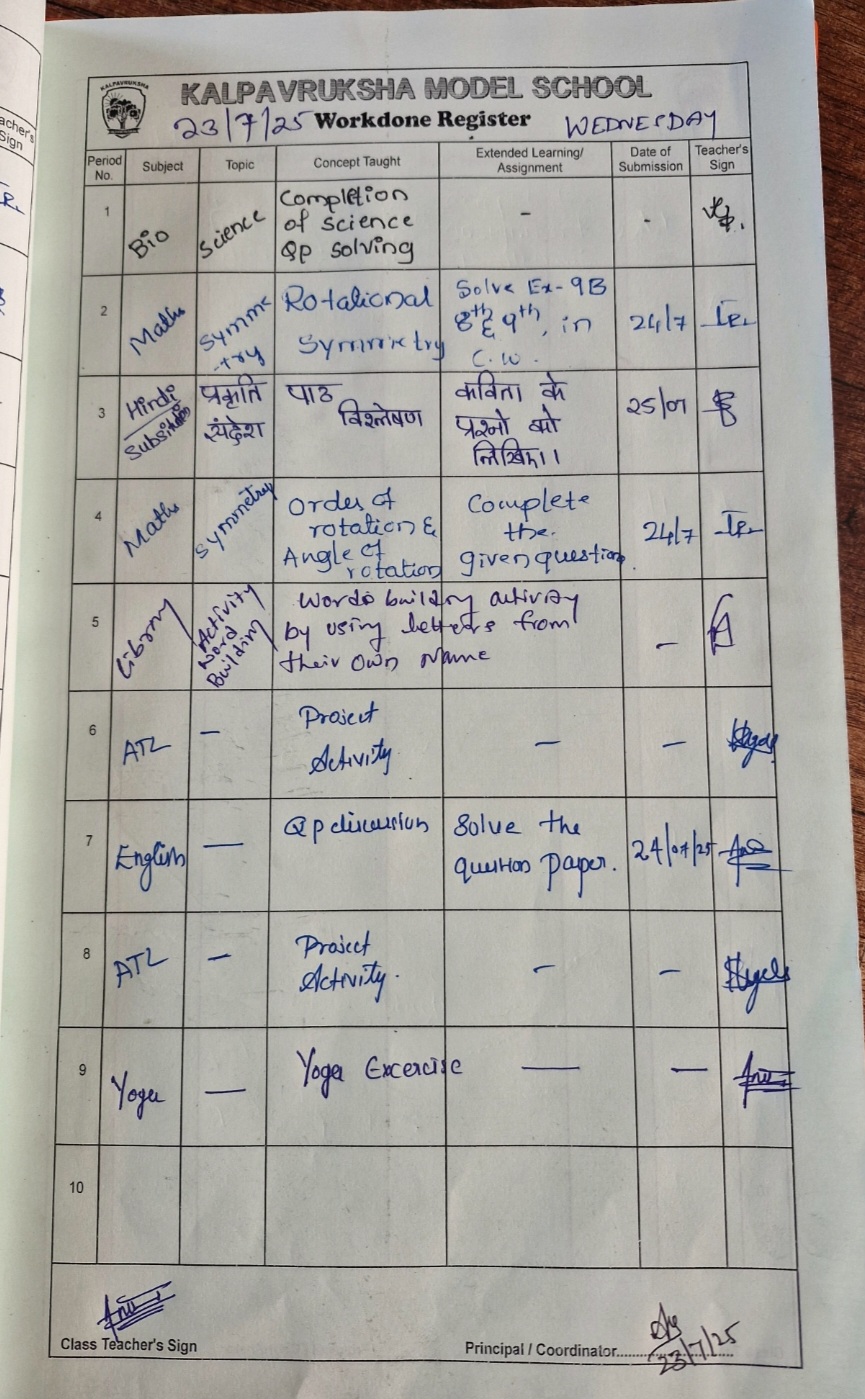 KALPAVRUKSHA
KALPAVRUKSHA MODEL SCHOOL
23/7/25 Workdone Register WEDNESDAY
acher's
Sign
Period No. Subject Topic Concept Taught Extended Learning/ Assignment Date of Submission Teacher's Sign
1 Bio Science Completion
of science
Qp solving - -
2 Maths Symme
-try Rotational
Symmetry Solve Ex-9B
8th & 9th, in
C.W. 24/7
3 Hindi
Subsitution प्रकृति
संदेश पाठ
विश्लेषण कविता के
प्रश्नो को
लिखिए।। 25/07
4 Maths Symmetry Order of
rotation &
Angle of
rotation Complete
the
given question. 24/7
5 Library Activity
Word
Building Words building activity
by using letters from
their own Name -
6 ATL - Project
Activity - -
7 English - Qp discussion Solve the
question paper. 24/07/25
8 ATL - Project
Activity. - -
9 Yoga - Yoga Excercise - -
10
Class Teacher's Sign
Principal / Coordinator..........
23/7/25